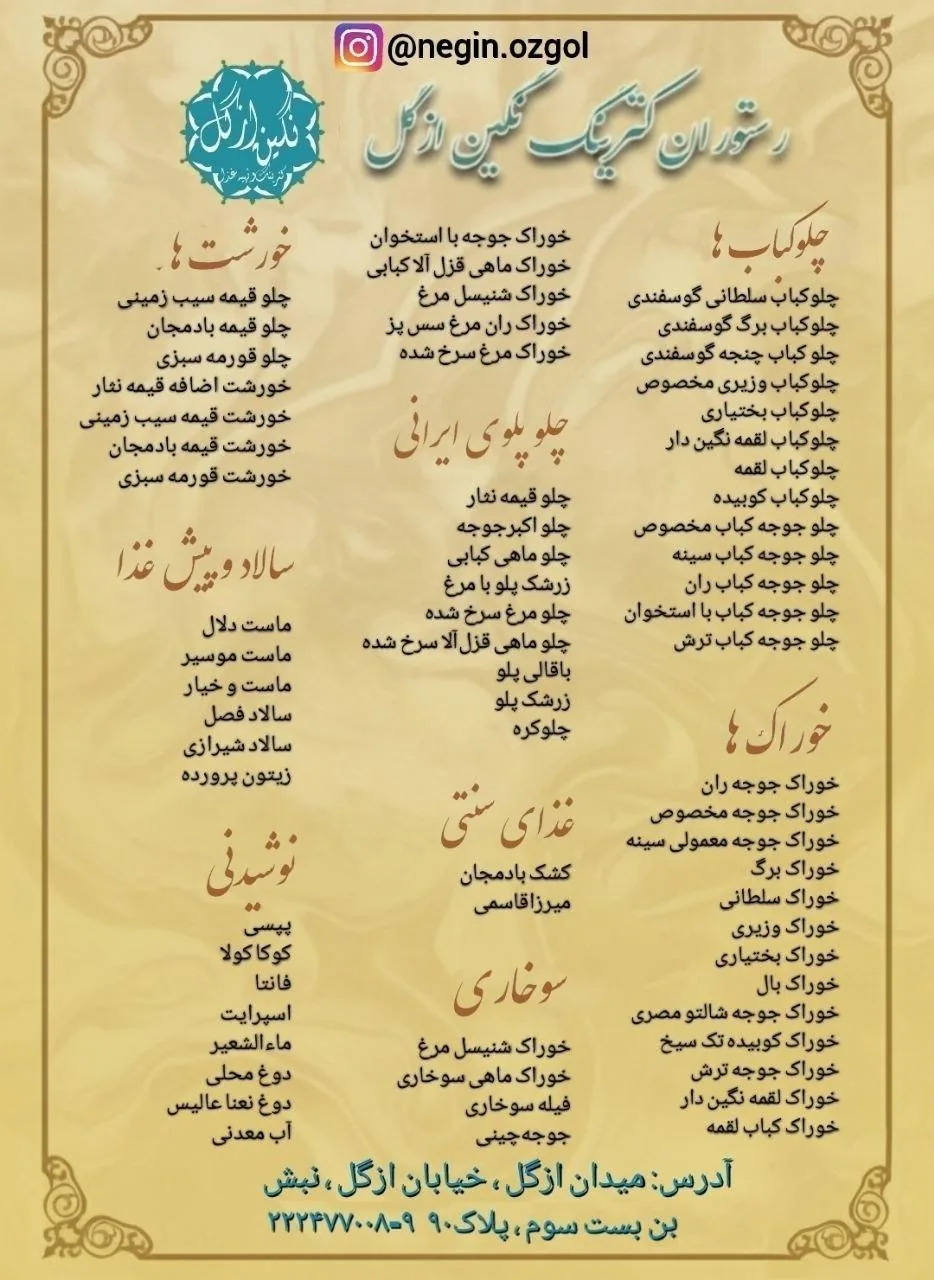 @negin.ozgol
رستوران کترینگ نگین ازگل
نگین ازگل
کترینگ و تهیه غذا
چلوکباب ها
چلوکباب سلطانی گوسفندی
چلوکباب برگ گوسفندی
چلو کباب چنجه گوسفندی
چلوکباب وزیری مخصوص
چلوکباب بختیاری
چلوکباب لقمه نگین دار
چلوکباب لقمه
چلوکباب کوبیده
چلو جوجه کباب مخصوص
چلو جوجه کباب سینه
چلو جوجه کباب ران
چلو جوجه کباب با استخوان
چلو جوجه کباب ترش
خوراک ها
خوراک جوجه ران
خوراک جوجه مخصوص
خوراک جوجه معمولی سینه
خوراک برگ
خوراک سلطانی
خوراک وزیری
خوراک بختیاری
خوراک بال
خوراک جوجه شالتو مصری
خوراک کوبیده تک سیخ
خوراک جوجه ترش
خوراک لقمه نگین دار
خوراک کباب لقمه
خوراک جوجه با استخوان
خوراک ماهی قزل آلا کبابی
خوراک شنیسل مرغ
خوراک ران مرغ سس پز
خوراک مرغ سرخ شده
چلو پلوی ایرانی
چلو قیمه نثار
چلو اکبرجوجه
چلو ماهی کبابی
زرشک پلو با مرغ
چلو مرغ سرخ شده
چلو ماهی قزل‌آلا سرخ شده
باقالی پلو
زرشک پلو
چلوکره
غذای سنتی
کشک بادمجان
میرزاقاسمی
سوخاری
خوراک شنیسل مرغ
خوراک ماهی سوخاری
فیله سوخاری
جوجه‌چینی
خورشت ها
چلو قیمه سیب زمینی
چلو قیمه بادمجان
چلو قورمه سبزی
خورشت اضافه قیمه نثار
خورشت قیمه سیب زمینی
خورشت قیمه بادمجان
خورشت قورمه سبزی
سالاد و پیش غذا
ماست دلال
ماست موسیر
ماست و خیار
سالاد فصل
سالاد شیرازی
زیتون پرورده
نوشیدنی
پپسی
کوکا کولا
فانتا
اسپرایت
ماءالشعیر
دوغ محلی
دوغ نعنا عالیس
آب معدنی
آدرس: میدان ازگل ، خیابان ازگل ، نبش
بن بست سوم ، پلاک۹۰ ۹-۲۲۲۴۷۷۰۰۸